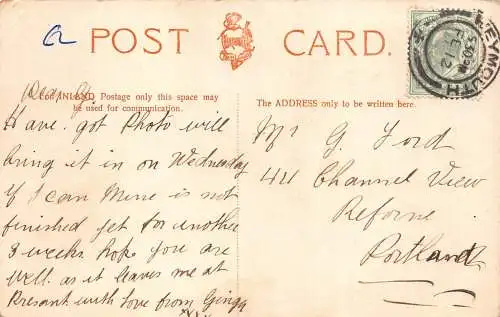 a
POST CARD.
WEYMOUTH
FE 12
Dear G.
For INLAND Postage only this space may
be used for communication.
The ADDRESS only to be written here.
Have got Photo will
bring it in on Wednesday
if I can Mine is not
finished yet for another
3 weeks hope you are
well as it leaves me at
Presant with love from
Mr G. Ford
44 Channel View
Reforne
Portland